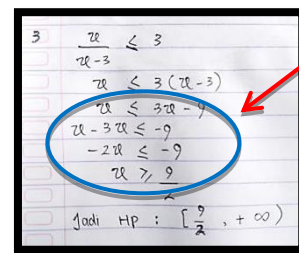 3 x/(x-3) ≤ 3
x ≤ 3(x-3)
x ≤ 3x - 9
x - 3x ≤ -9
-2x ≤ -9
x ≥ 9/2
Jadi HP : [9/2, +∞)